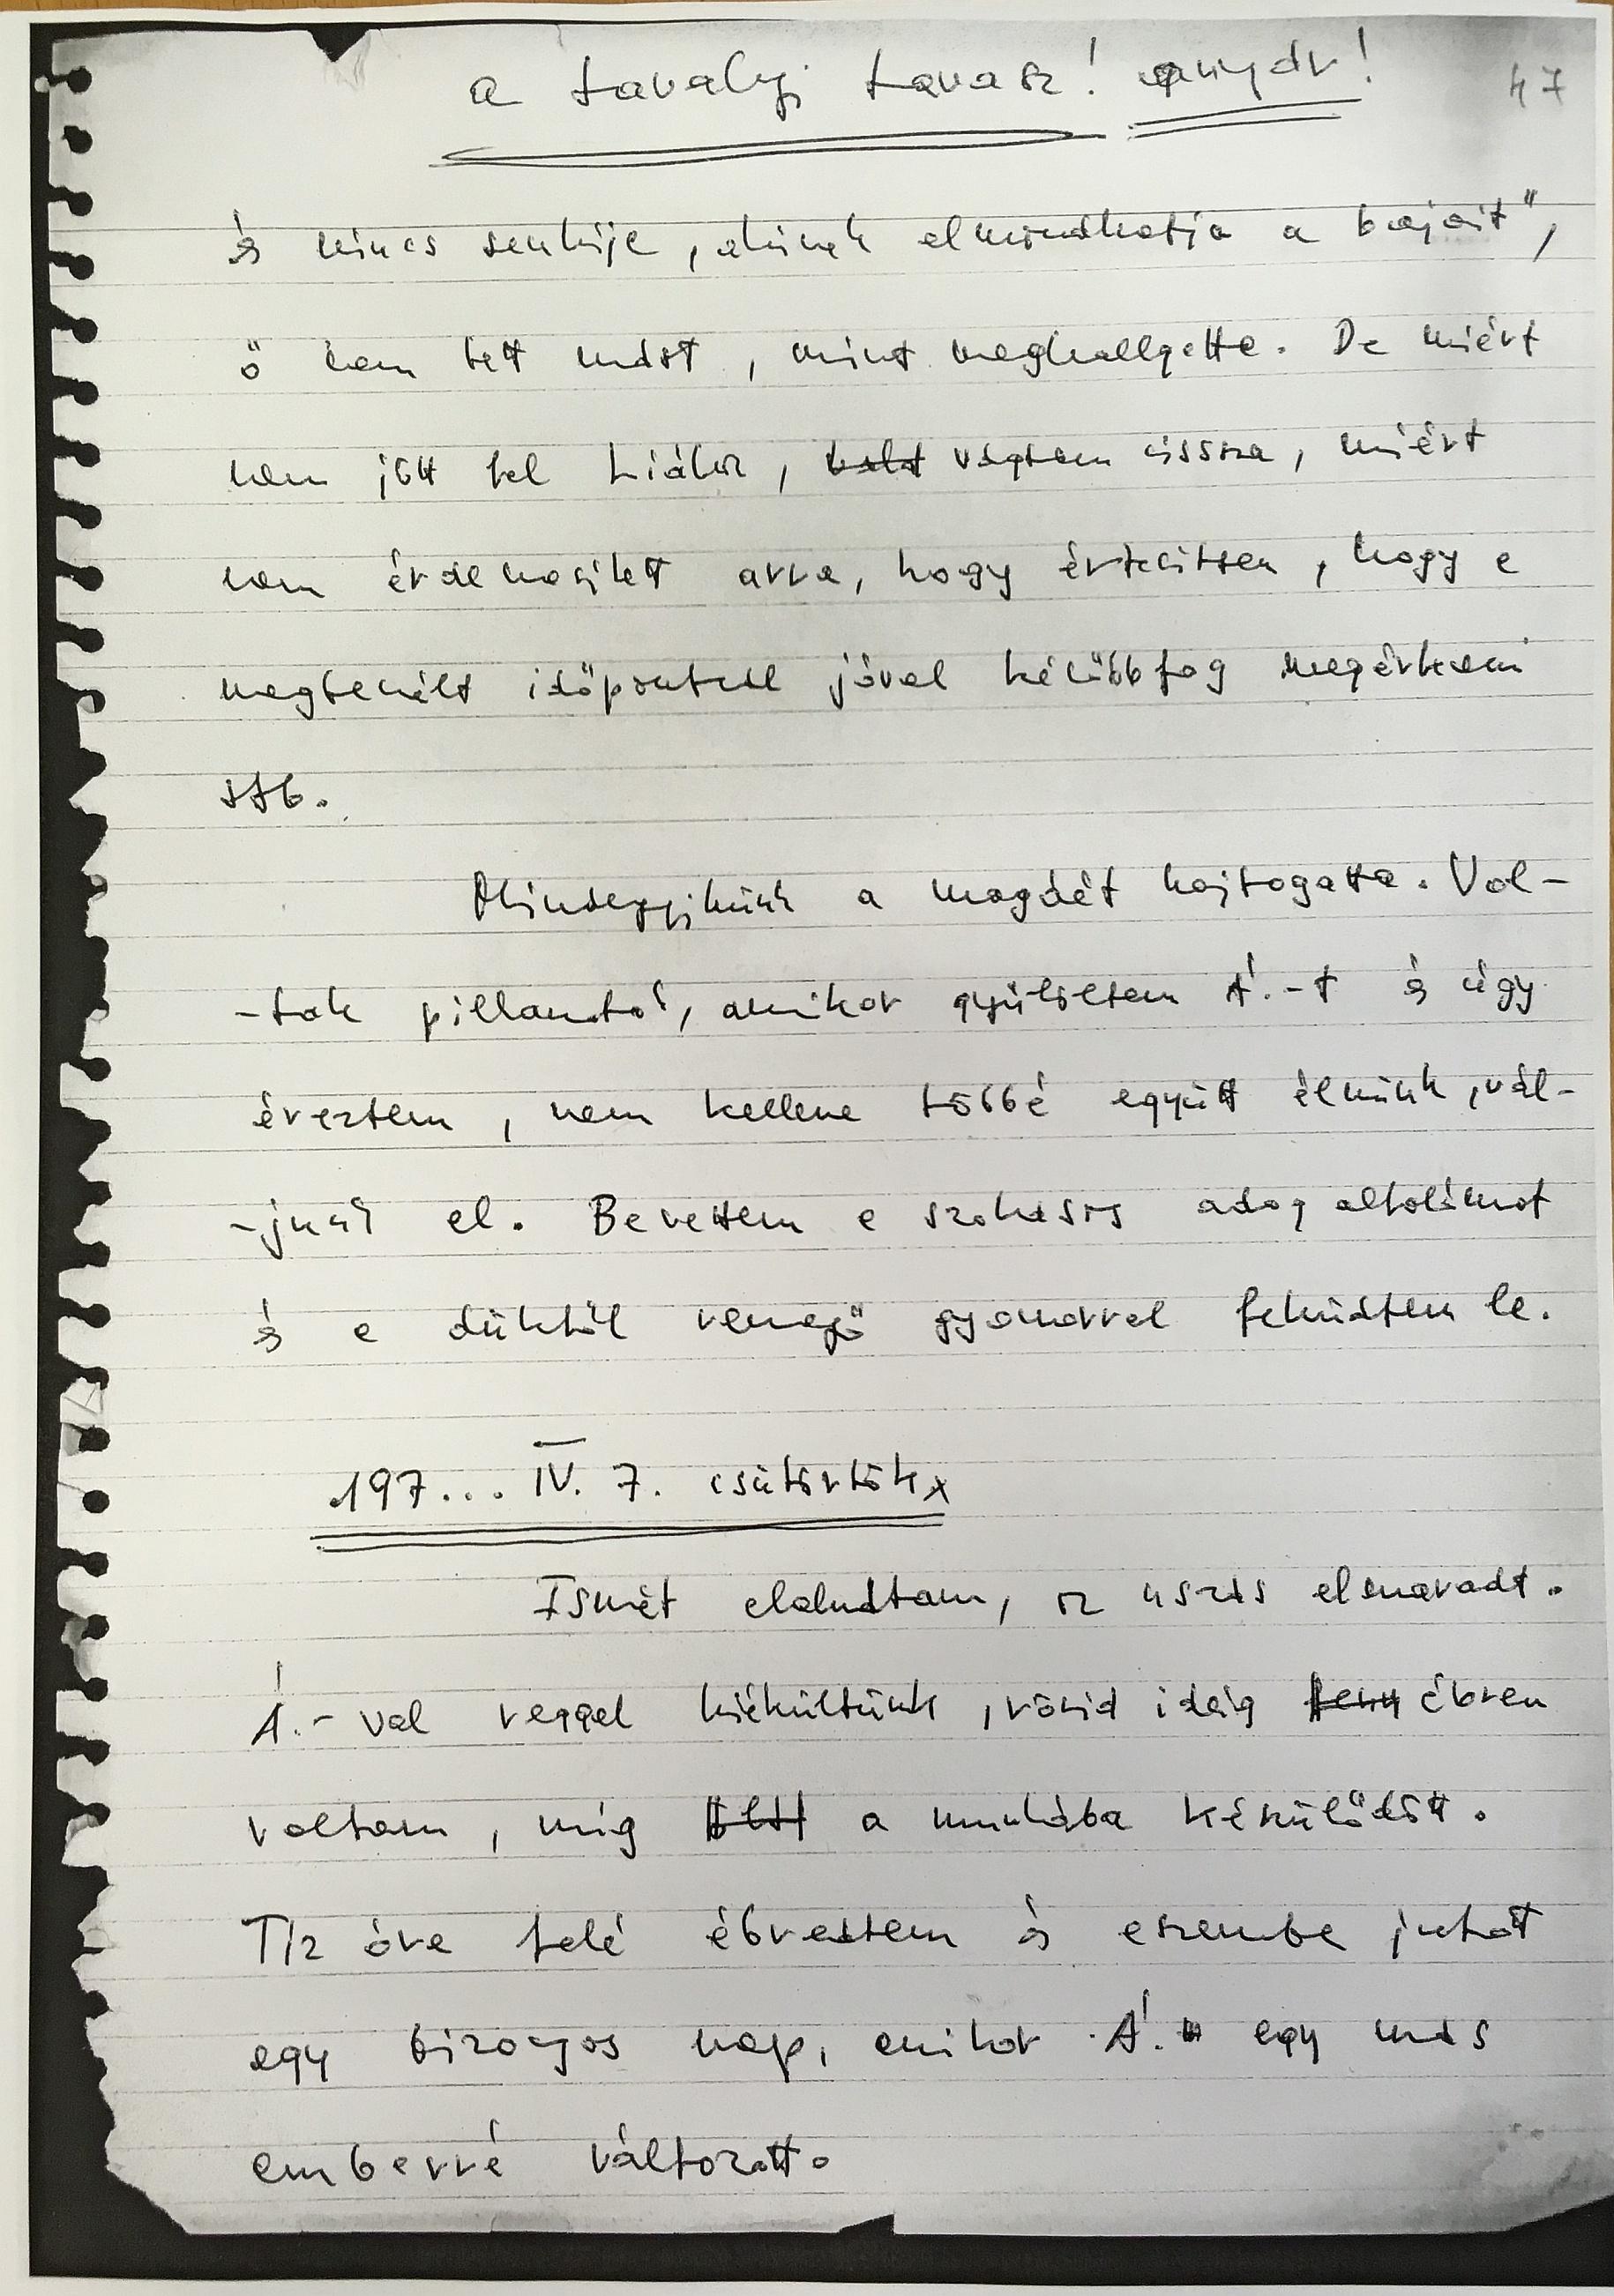 a tavalyi tavasz! anyár! 47
és nincs senkije, akinek elmondhatja a bajait",
ő nem tett mást, mint meghallgatta. De miért
nem jött fel Liához, vágtam vissza, miért
nem érdemesített arra, hogy értesítsen, hogy a
megbeszélt időpontnál jóval később fog megérkezni
stb.
Mindegyikünk a magáét hajtogatta. Vol-
-tak pillanatok, amikor gyűlöltem Á.-t és úgy
éreztem, nem kellene többé együtt élnünk, vál-
-junk el. Bevettem a szokásos adag altatómat
és a dühtől remegő gyomorral feküdtem le.
197... IV. 7. csütörtök
Ismét elaludtam, az úszás elmaradt.
Á.-val reggel kibékültünk, rövid ideig ébren
voltam, míg a munkába készülődött.
Tíz óra felé ébredtem és eszembe jutott
egy bizonyos nap, amikor Á. egy más
emberré változott.